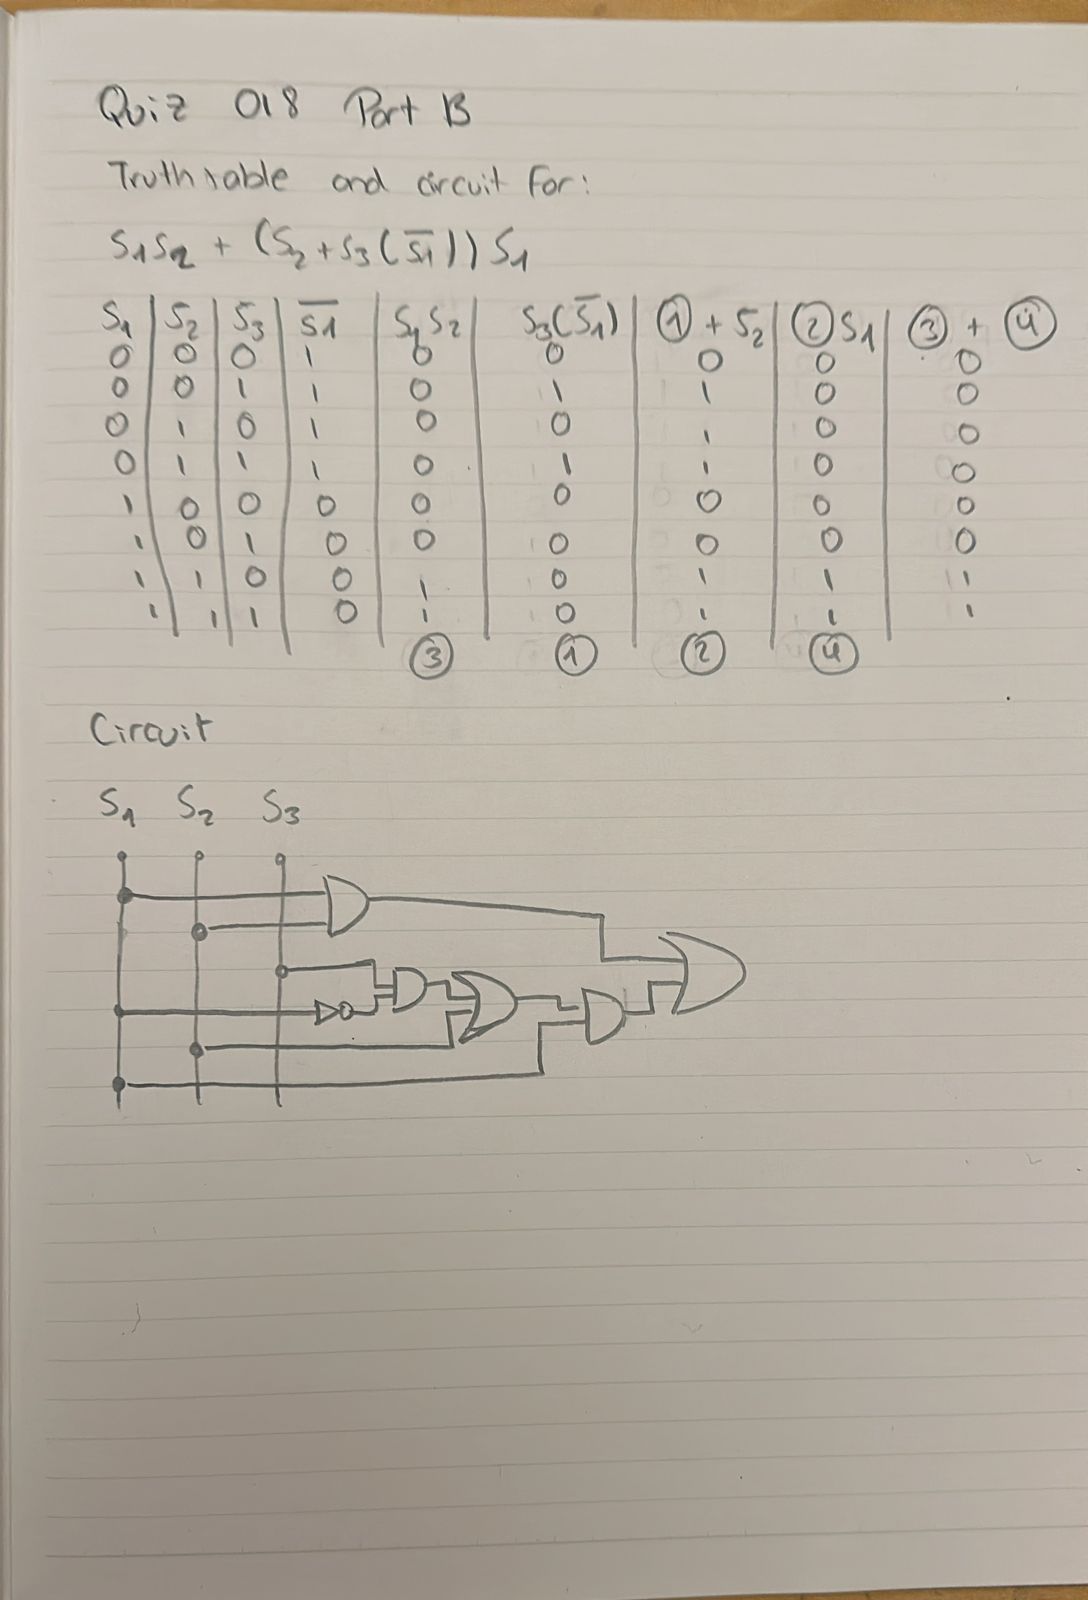 Quiz 018 Part B
Truth table and circuit for:
S₁S₂ + (S₂+S₃(S̅1̅))S₁
S₁ | S₂ | S₃ | S̅1̅ | S₁S₂ | S₃(S̅₁) | ① + S₂ | ②S₁ | ③ + ④
0 0 0 1 0 0 0 0 0
0 0 1 1 0 1 1 0 0
0 1 0 1 0 0 1 0 0
0 1 1 1 0 1 1 0 0
1 0 0 0 0 0 0 0 0
1 0 1 0 0 0 0 0 0
1 1 0 0 1 0 1 1 1
1 1 1 0 1 0 1 1 1
③ ① ② ④
Circuit
S₁ S₂ S₃